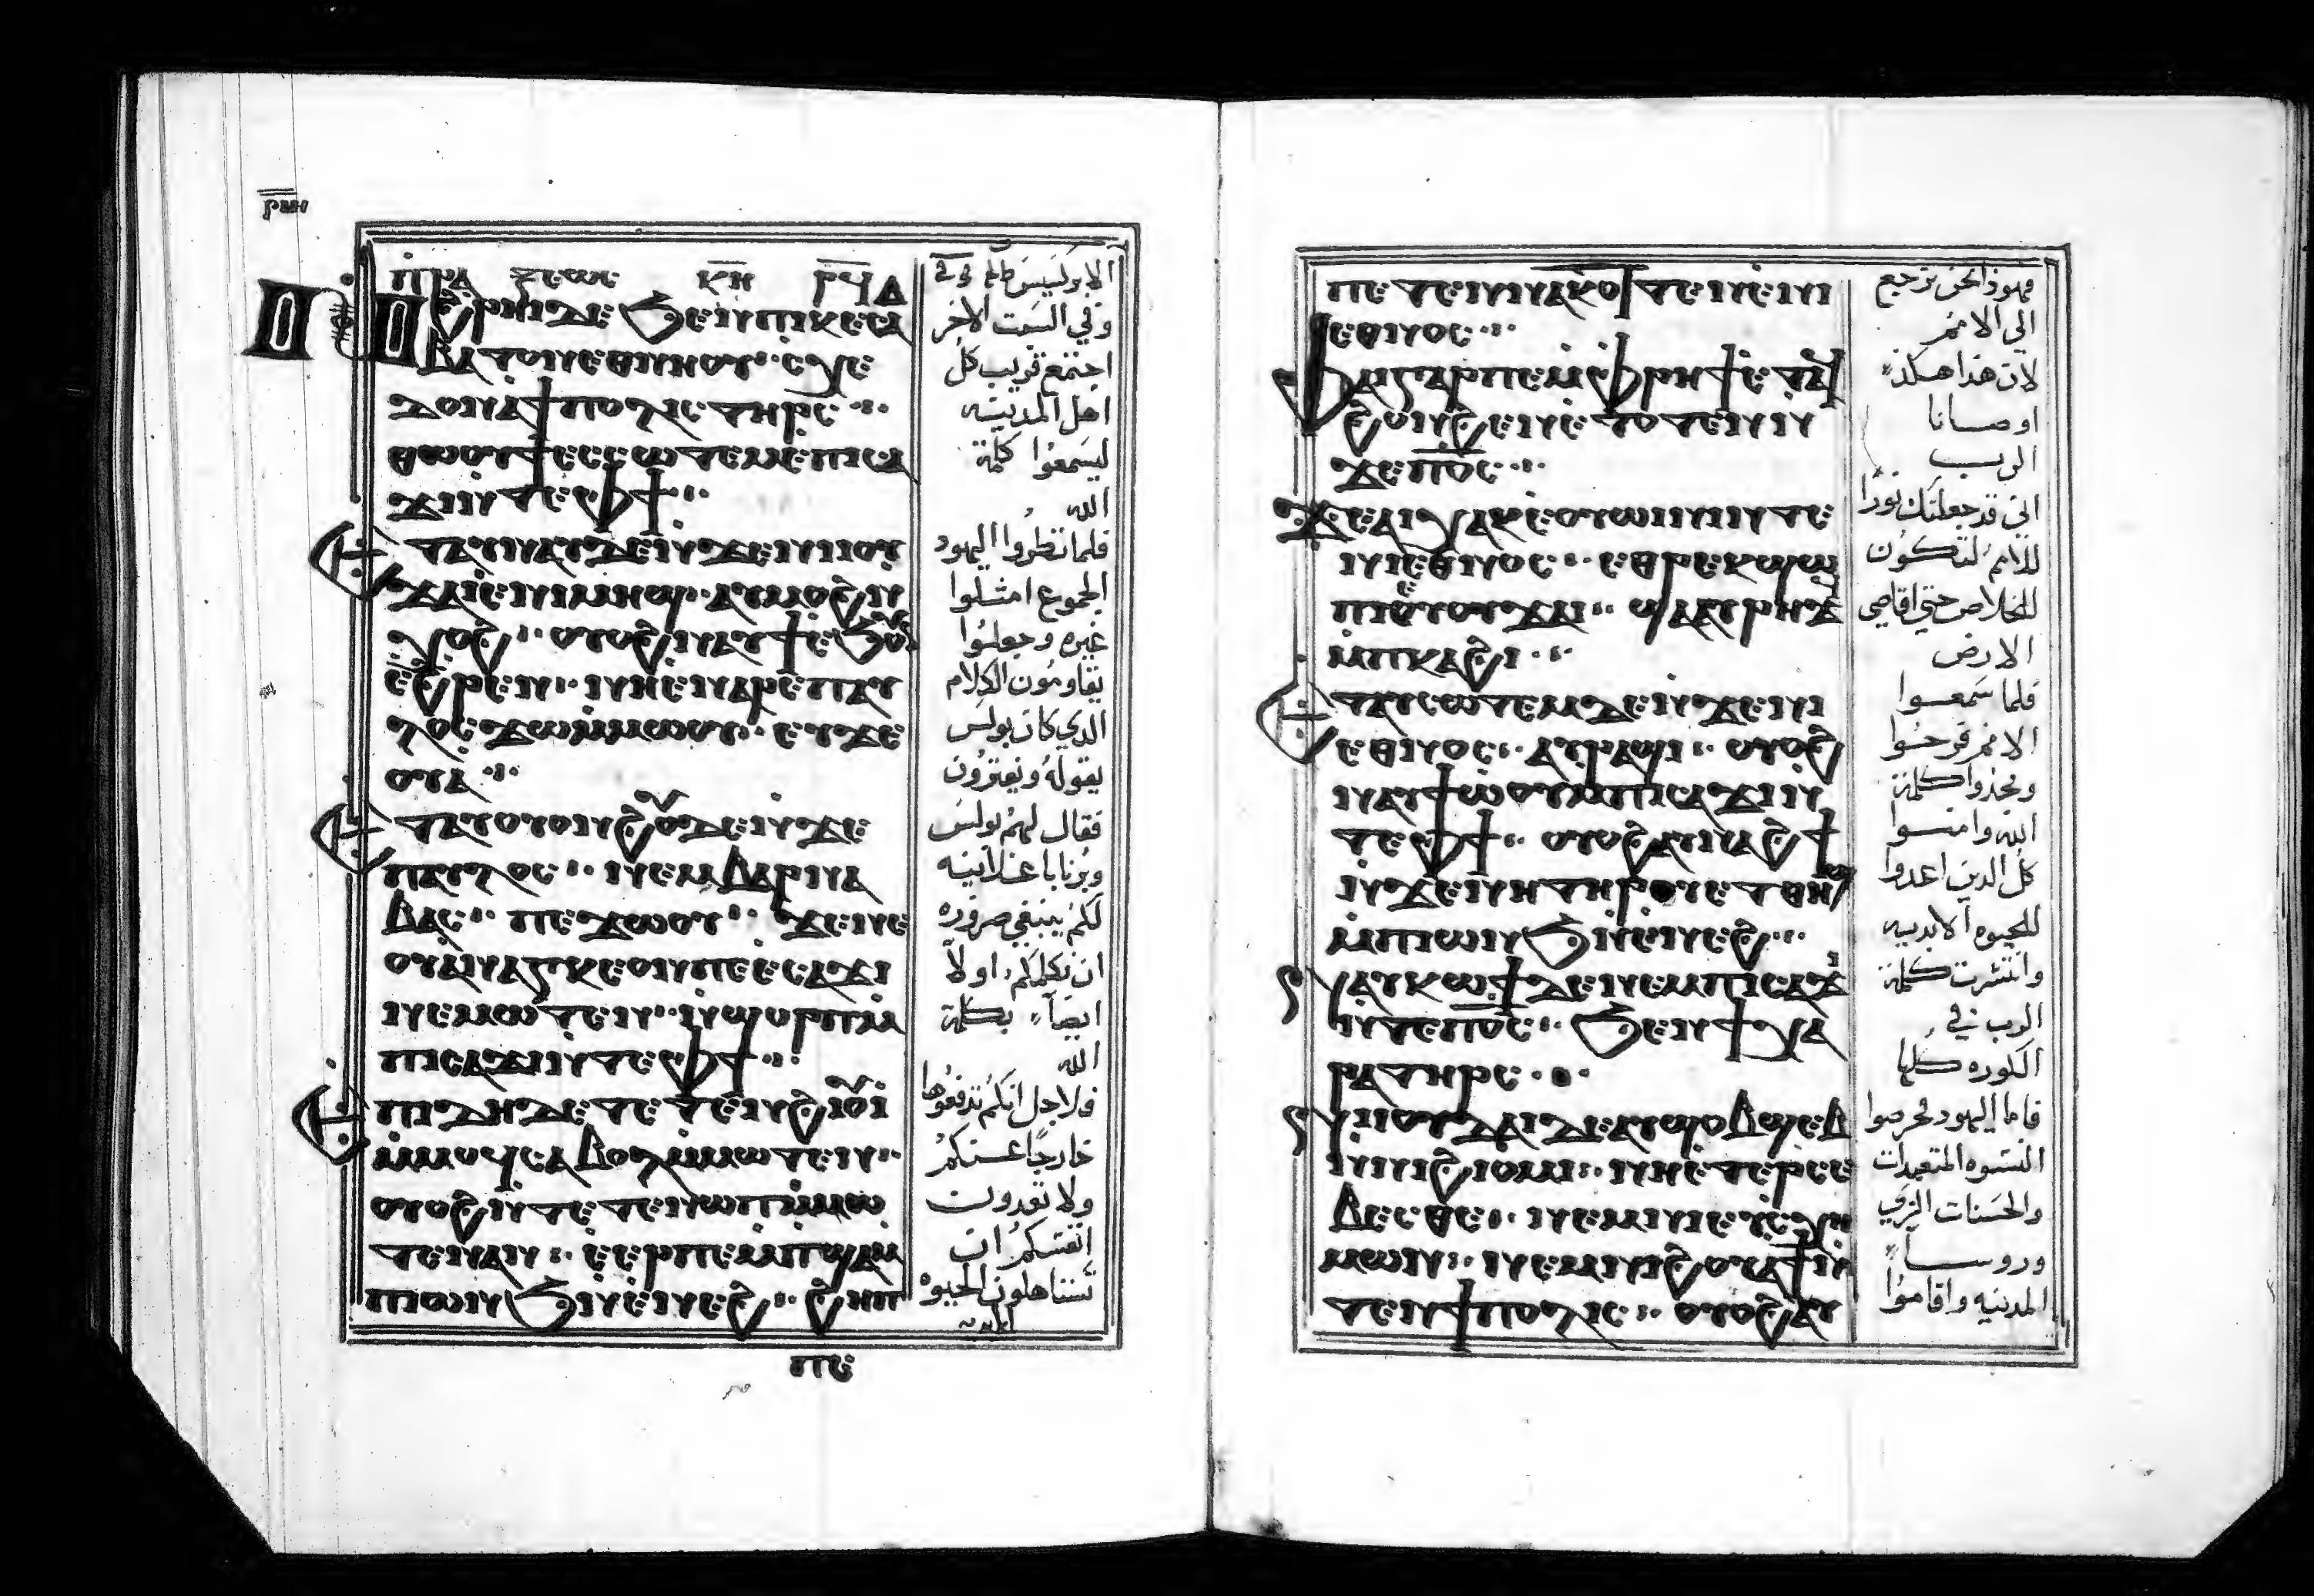 ⲣⲙⲏ
ⲡⲣⲁ ⲝⲉⲱⲥ ⲕⲏ ⲣϥⲇ
ⲛ̀ϩ̀ⲣⲏⲓ ⲇⲉ ϧⲉⲛ ⲡⲓⲕⲉⲥⲁ
ⲃⲃⲁⲧⲟⲛ ⲉⲑⲛⲏⲟⲩ·· ⲥⲭⲉ
ⲇⲟⲛ ⲁ̀ϯⲡⲟⲗⲓⲥ ⲧⲏⲣⲥ ··
ⲑⲱⲟⲩϯ ⲉ̀ⲥⲉⲱⲧⲉⲙ ⲉ̀ⲡⲓⲥⲁ
ϫⲓ ⲛ̀ⲧⲉ ⲫϯ ··
ⲉⲧⲁⲩⲛⲁⲩ ⲇⲉ ⲛ̀ϫⲉ ⲛⲓⲓⲟⲩ
ⲇⲁⲓ ⲉ̀ⲛⲓⲙⲏϣ·· ⲁⲩⲙⲟϩ ⲛ̀
ⲭⲟϩ·· ⲟⲩⲟϩ ⲛⲁⲩϯ ⲉ̀ϧⲟⲩⲛ
ⲉ̀ϩⲣⲉⲛ·· ⲛⲏ ⲉ̀ⲛⲁⲣⲉ ⲡⲁⲩ
ⲗⲟⲥ ϫⲱ ⲙ̀ⲙⲱⲟⲩ·· ⲉⲩϫⲉ
ⲟⲩⲁ ··
ⲉⲧⲁⲩⲟⲩⲟⲛϩⲟⲩ ⲇⲉ ⲛ̀ϫⲉ
ⲡⲁⲩⲗⲟⲥ·· ⲛⲉⲙ ⲃⲁⲣⲛⲁ
ⲃⲁⲥ·· ⲡⲉϫⲱⲟⲩ·· ϫⲉ ⲛⲉ
ⲟⲩⲁⲛⲁⲅⲕⲉⲟⲛ ⲡⲉ ⲉ̀ⲥⲁϫⲓ
ⲛⲉⲙⲱⲧⲉⲛ·· ⲛ̀ϣⲟⲣⲡ ⲙ̀
ⲡⲓⲥⲁϫⲓ ⲛ̀ⲧⲉ ⲫϯ ··
ⲉ̀ⲡⲓⲇⲏ ⲇⲉ ⲧⲉⲧⲉⲛϩⲓⲟⲩⲓ̀
ⲙ̀ⲙⲟϥ ⲥⲁⲃⲟⲗ ⲙ̀ⲙⲱⲧⲉⲛ··
ⲟⲩⲟϩ ⲛ̀ⲧⲉⲧⲉⲛⲱⲡ ⲙ̀ⲙⲱ
ⲧⲉⲛ ⲁⲛ·· ⲉ̀ⲉⲣⲡⲉⲙⲡϣⲁ ⲙ̀
ⲡⲓⲱⲛϧ ⲛ̀ⲉ̀ⲛⲉϩ·· ϩⲏⲡ
ⲡⲉ
وفي السبت الاخر
اجتمع قريب كل
اهل المدينه
ليسمعوا كلمة
الله
فلما نظروا اليهود
الجموع امتلوا
غيره وجعلوا
يقاومون الكلام
الدي كان بولس
يقوله ويفترون
فقال لهم بولس
وبرنابا علانيه
لكم ينبغي ضروره
ان نكلمكم اولاً
ايضاً بكلمة
الله
فلاجل انكم تدفعوها
خارجاً عنكم
ولا تعدون
انفسكم ان
تستاهلون الحيوه
الابديه
ⲡⲉ ⲧⲉⲛⲛⲁⲕⲟⲧⲧⲉⲛ ⲉ̀ⲛⲓ
ⲉⲑⲛⲟⲥ ··
ⲫⲁⲓ ⲅⲁⲣ ⲡⲉ ⲙ̀ⲫⲣⲏϯ ⲉ̀ⲧⲁϥ
ϩⲟⲛϩⲉⲛ ⲉ̀ⲧⲟⲧⲉⲛ ⲛ̀
ϫⲉ ⲡⲟ̅ⲥ̅ ··
ϫⲉ ⲁⲓⲭⲁⲕ ⲉ̀ⲟⲩⲱⲓⲛⲓ ⲛ̀ⲧⲉ
ⲛⲓⲉⲑⲛⲟⲥ·· ⲉⲑⲣⲉⲕϣⲱ
ⲡⲓ ⲉ̀ⲩⲟⲩϫⲁⲓ·· ϣⲁ ⲁⲩⲣⲏϫ
ⲙ̀ⲡⲕⲁϩⲓ ··
ⲉⲧⲁⲩⲥⲱⲧⲉⲙ ⲇⲉ ⲛ̀ϫⲉ ⲛⲓ
ⲉⲑⲛⲟⲥ·· ⲁⲩⲣⲁϣⲓ·· ⲟⲩⲟϩ
ⲛⲁⲩϯⲱ̀ⲟⲩ ⲙ̀ⲡⲓⲥⲁϫⲓ ⲛ̀
ⲧⲉ ⲫϯ·· ⲟⲩⲟϩ ⲁⲩⲛⲁϩϯ
ⲛ̀ϫⲉ ⲛⲏ ⲧⲏⲣⲟⲩ ⲉⲧⲑⲏϣ
ⲙ̀ⲡⲱⲛϧ ⲛ̀ⲉ̀ⲛⲉϩ ··
ⲛⲁⲩⲕⲱϯ ⲇⲉ ⲛⲉⲙ ⲡⲓⲥⲁϫⲓ
ⲛ̀ⲧⲉ ⲡⲟ̅ⲥ̅·· ϧⲉⲛ ϯⲭⲱ
ⲣⲁ ⲧⲏⲣⲥ ··
ⲛⲓⲓⲟⲩⲇⲁⲓ ⲇⲉ ⲁⲩϣⲟⲃϣⲉⲃ
ⲛ̀ⲛⲓϩⲓⲟⲙⲓ·· ⲛⲏ ⲉⲧⲉⲣⲥⲉ
ⲃⲉⲥⲑⲉ·· ⲛⲉⲙ ⲛⲓⲉⲩⲥⲭⲏ
ⲙⲱⲛ·· ⲛⲉⲙ ⲛⲓϩⲟⲩⲁϯ ⲛ̀
ⲧⲉ ϯⲡⲟⲗⲓⲥ·· ⲟⲩⲟϩ ⲁⲩ
فهوذا نحن نرجع
الي الامم
لان هذا هكذا
اوصانا
الرب
اني قد جعلتك نوراً
للامم لتكون
للخلاص حتي اقاصي
الارض
فلما سمعوا
الامم فرحوا
ومجدوا كلمة
الله وامنوا
كل الدين اعدوا
للحيوه الابديه
وانتشرت كلمة
الرب في
الكوره كلها
فاما اليهود فحرصوا
النسوه المتعبدات
والحسنات الزي
وروساً
المدينه واقاموا